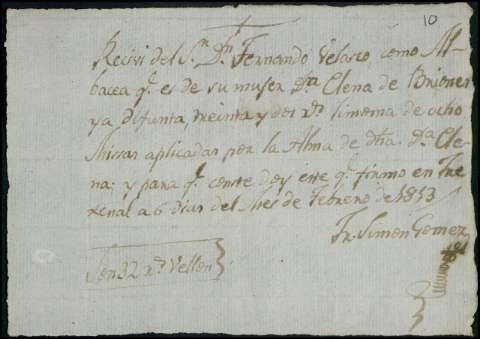 10
Recivi del S.r D.n Fernando Velasco como Al-
bacea q.e es de su muger D.a Elena de Briones
ya difunta, treinta y dos r.s limosna de ocho
Missas aplicadas por la Alma de dha. D.a Ele-
na: y para q.e conste doy este q.e firmo en Fre
xenal a 6 dias del Mes de Febrero de 1813
Fr. Simon Gomez
Son 32 r.s Vellon